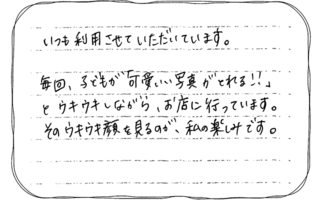 いつも利用させていただいています。
毎回、子どもが「可愛いい写真がとれる!!」
とウキウキしながら、お店に行っています。
そのウキウキ顔を見るのが、私の楽しみです。